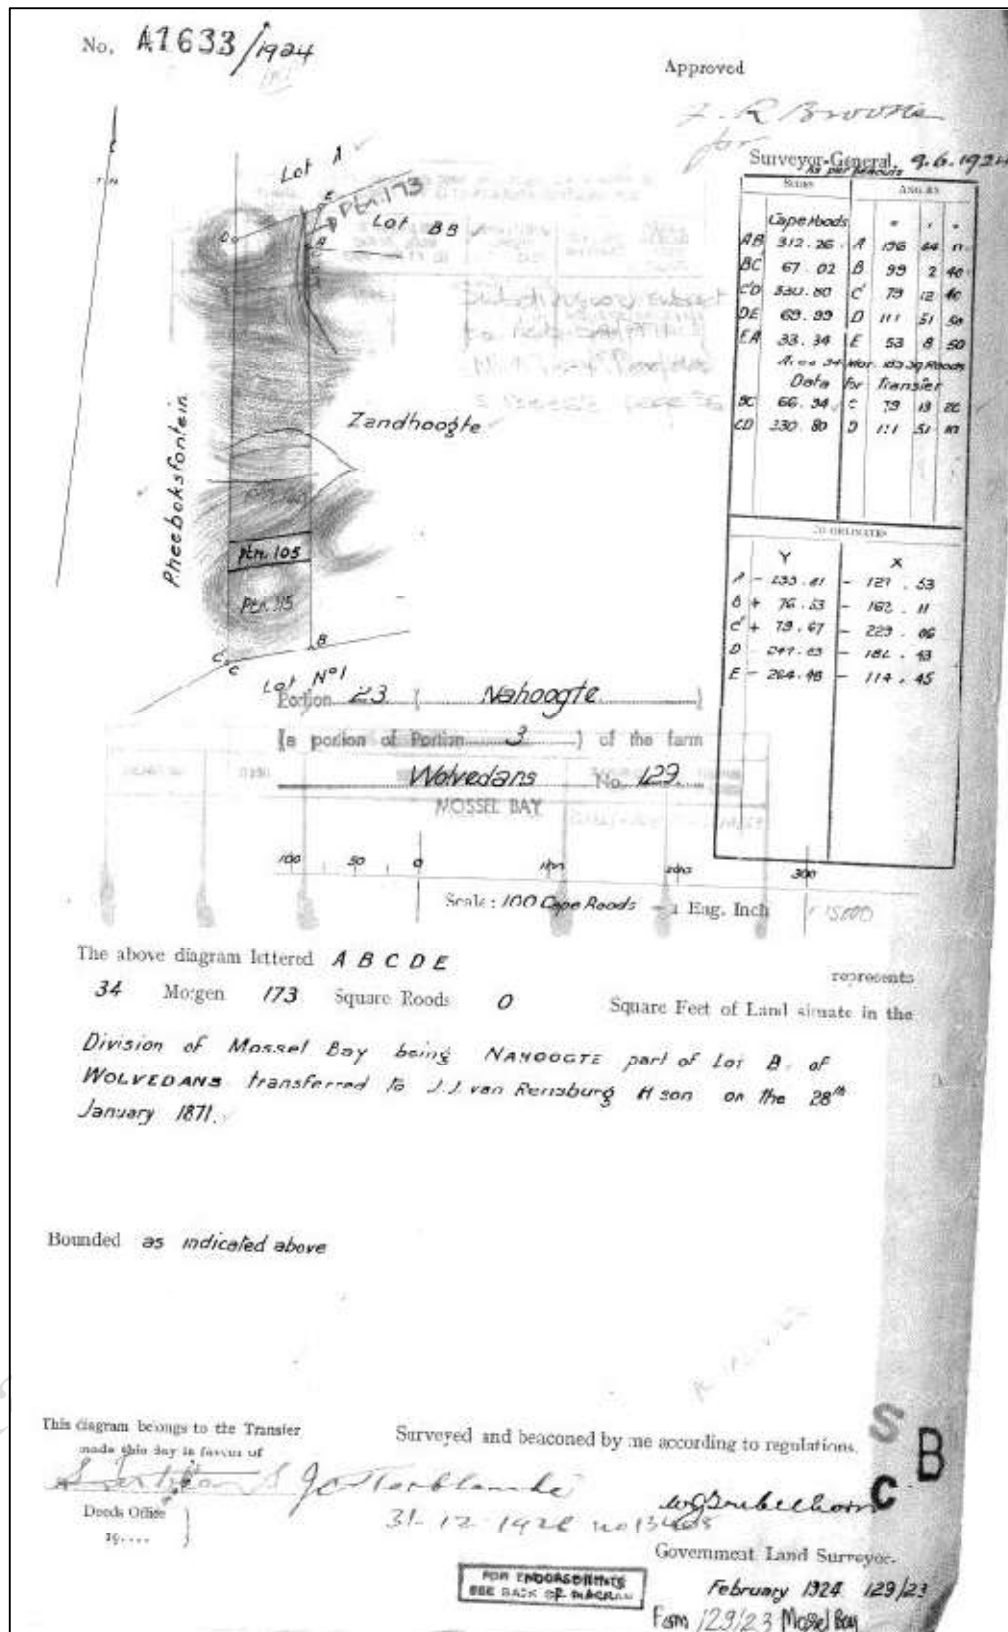 No. A1633/1924
Approved
Surveyor-General. 9.6.1924
As per beacons
SIDES ANGLES
Cape Roods ° ' "
AB 312.26 A 196 44 11
BC' 67.02 B 99 2 40
C'D 330.80 C' 79 12 40
DE 69.99 D 111 51 50
EA 33.34 E 53 8 50
Data for Transfer
BC 66.94 C 79 13 20
CD 330.80 D 111 51 10
CO-ORDINATES
Y X
A - 233.81 - 127.53
B + 76.53 - 162.11
C' + 79.67 - 229.06
D - - 182.43
E - 264.48 - 114.45
Lot A
E
Ptn. 173
Lot BB
D
A
T.N.
Zandhoogte
Pheeboksfontein
Ptn. 105
Ptn. 115
C'
C
B
Lot No 1
Portion 23 ( Nahoogte )
(a portion of Portion 3 ) of the farm
Wolvedans No. 129
MOSSEL BAY
100 50 0 100 200 300
Scale: 100 Cape Roods = 1 Eng. Inch 1:15000
The above diagram lettered A B C D E represents
34 Morgen 173 Square Roods 0 Square Feet of Land situate in the
Division of Mossel Bay being NAHOOGTE part of Lot B. of
WOLVEDANS transferred to J.J. van Rensburg H son on the 28th
January 1871.
Bounded as indicated above
This diagram belongs to the Transfer
made this day in favour of
Deeds Office
19....
31-12-1928 no
Surveyed and beaconed by me according to regulations.
S
B
C
Government Land Surveyor.
February 1924 129/23
FOR ENDORSEMENTS
SEE BACK OF DIAGRAM
Farm 129/23 Mossel Bay